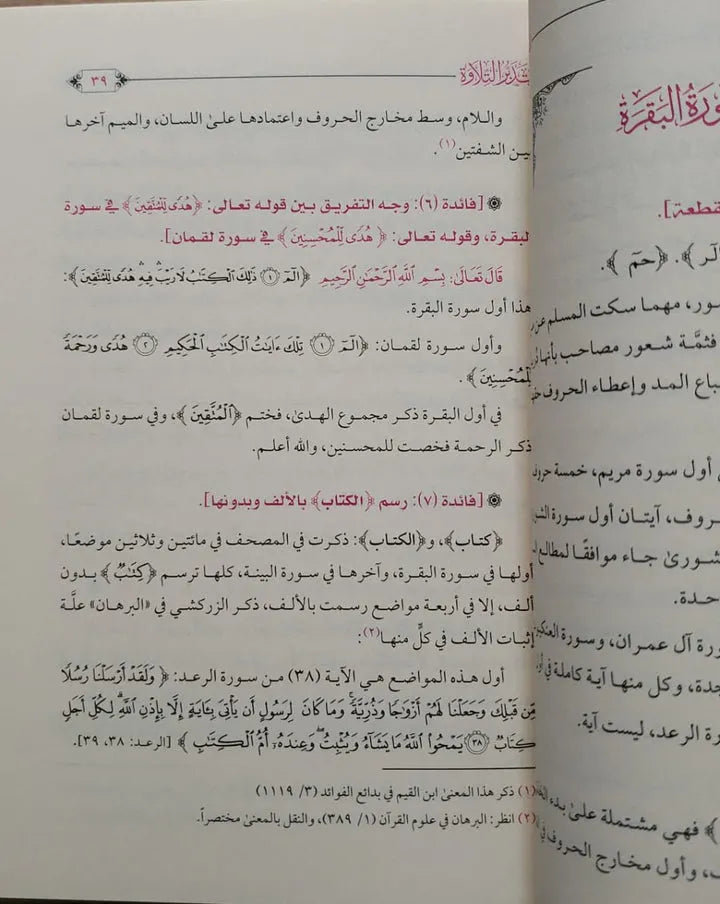 تدبر التلاوة
٣٩
واللام، وسط مخارج الحروف واعتمادها على اللسان، والميم آخرها
بين الشفتين(١).
[فائدة (٦): وجه التفريق بين قوله تعالى: ﴿هُدًى لِلْمُتَّقِينَ﴾ في سورة
البقرة، وقوله تعالى: ﴿هُدًى لِلْمُحْسِنِينَ﴾ في سورة لقمان].
قَالَ تَعَالَى: بِسْمِ اللَّهِ الرَّحْمَنِ الرَّحِيمِ ﴿الٓمٓ ۝١ ذَلِكَ الْكِتَابُ لَا رَيْبَ فِيهِ هُدًى لِلْمُتَّقِينَ﴾:
هذا أول سورة البقرة.
وأول سورة لقمان: ﴿الٓمٓ ۝١ تِلْكَ ءَايَتُ الْكِتَبِ الْحَكِيمِ ۝٢ هُدًى وَرَحْمَةً
لِلْمُحْسِنِينَ﴾.
في أول البقرة ذكر مجموع الهدى، فختم ﴿الْمُتَّقِينَ﴾، وفي سورة لقمان
ذكر الرحمة فخصت للمحسنين، والله أعلم.
[فائدة (٧): رسم ﴿الكتاب﴾ بالألف وبدونها].
﴿كتاب﴾، و﴿الكتاب﴾: ذكرت في المصحف في مائتين وثلاثين موضعًا،
أولها في سورة البقرة، وآخرها في سورة البينة، كلها ترسم ﴿كِتَبٌ﴾ بدون
ألف، إلا في أربعة مواضع رسمت بالألف، ذكر الزركشي في «البرهان» علَّة
إثبات الألف في كلٍّ منها(٢):
أول هذه المواضع هي الآية (٣٨) من سورة الرعد: ﴿وَلَقَدْ أَرْسَلْنَا رُسُلًا
مِّن قَبْلِكَ وَجَعَلْنَا لَهُمْ أَزْوَاجًا وَذُرِّيَّةً وَمَا كَانَ لِرَسُولٍ أَن يَأْتِيَ بِـَٔايَةٍ إِلَّا بِإِذْنِ اللَّهِ لِكُلِّ أَجَلٍ
كِتَابٌ ۝٣٨ يَمْحُوا اللَّهُ مَا يَشَاءُ وَيُثْبِتُ وَعِندَهُ أُمُّ الْكِتَبِ﴾ [الرعد: ٣٨، ٣٩].
(١) ذكر هذا المعنى ابن القيم في بدائع الفوائد (٣/ ١١١٩)
(٢) انظر: البرهان في علوم القرآن (١/ ٣٨٩)، والنقل بالمعنى مختصراً.
سورة البقرة
الٓر﴾. ﴿حمٓ﴾.
سور، مهما سكت المسلم عن
فثمَّة شعور مصاحب بأنها
باع المد وإعطاء الحروف
أول سورة مريم، خمسة حروف
روف، آيتان أول سورة
شورى جاء موافقًا لمطالع
حدة.
ورة آل عمران، وسورة العنكبوت
حدة، وكل منها آية كاملة في
رة الرعد، ليست آية.
﴾ فهي مشتملة على بدء
، وأول مخارج الحروف